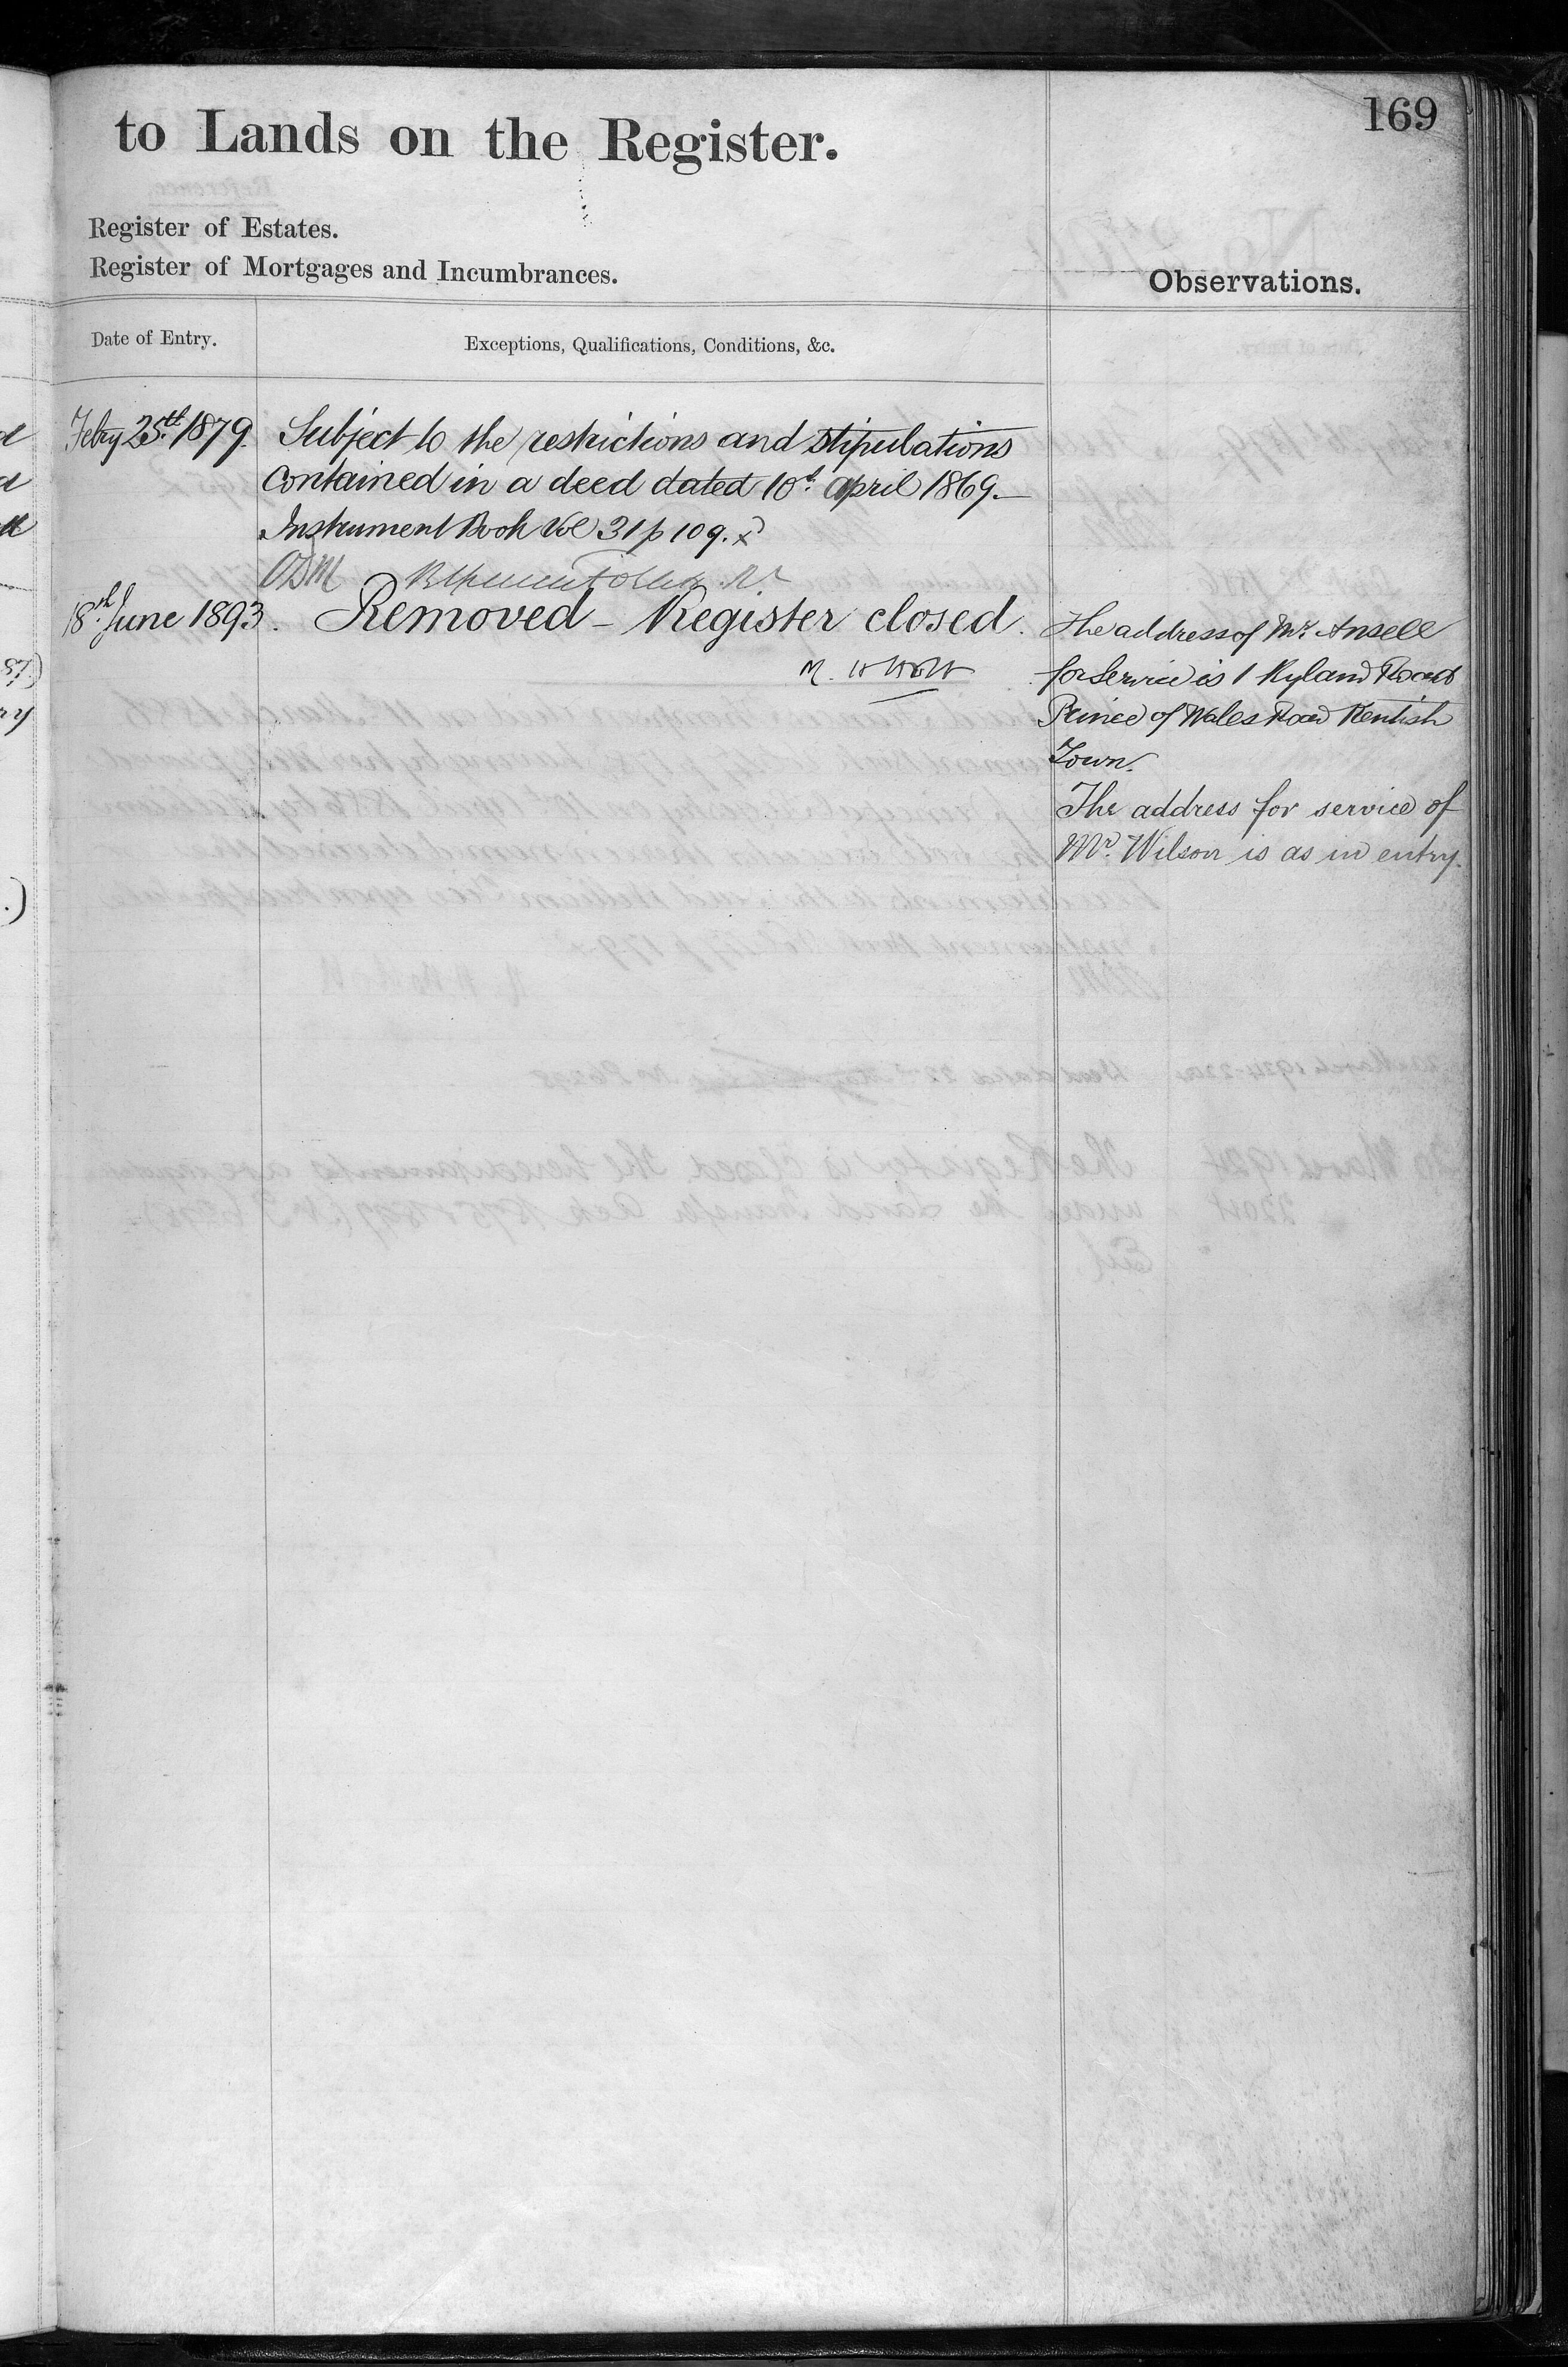 169
to Lands on the Register.
Register of Estates.
Register of Mortgages and Incumbrances.
Observations.
Date of Entry.
Exceptions, Qualifications, Conditions, &c.
Feby 25th 1879. Subject to the restrictions and stipulations
contained in a deed dated 10th April 1869.
Instrument Book Vol 31 p 109.
18th June 1893. Removed - Register closed.
The address of Mr. Ansell
for Service is 1 Ryland Road
Prince of Wales Road Kentish
Town.
The address for service of
Mr. Wilson is as in entry.